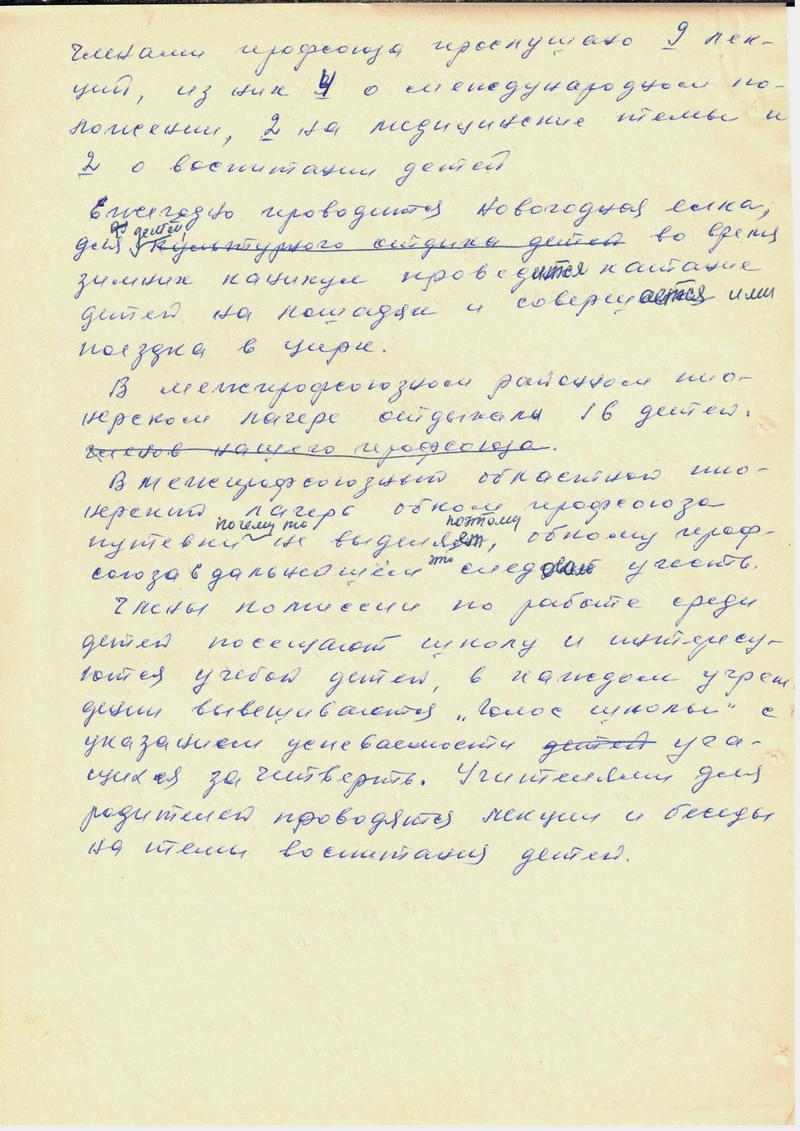 Членами профсоюза прослушано 9 лек-
ций, из них 4 о международном по-
ложении, 2 на медицинские темы и
2 о воспитании детей
Ежегодно проводится новогодняя елка,
детей,
для культурного отдыха детей во время
зимних каникул проводится катание
детей на лошадях и совершается ими
поездка в цирк.
В межпрофсоюзном районном пио-
нерском лагере отдыхали 16 детей.
членов нашего профсоюза.
В межпрофсоюзный областной пио-
нерский лагерь обком профсоюза
почему то поэтому
путевки не выделяет, обкому проф-
союза в дальнейшем это следовало учесть.
Члены комиссии по работе среди
детей посещают школу и интересу-
ются учебой детей, в каждом учреж
дении вывешиваются „Голос школы" с
указанием успеваемости детей уча-
щихся за четверть. Учителями для
родителей проводятся лекции и беседы
на темы воспитания детей.